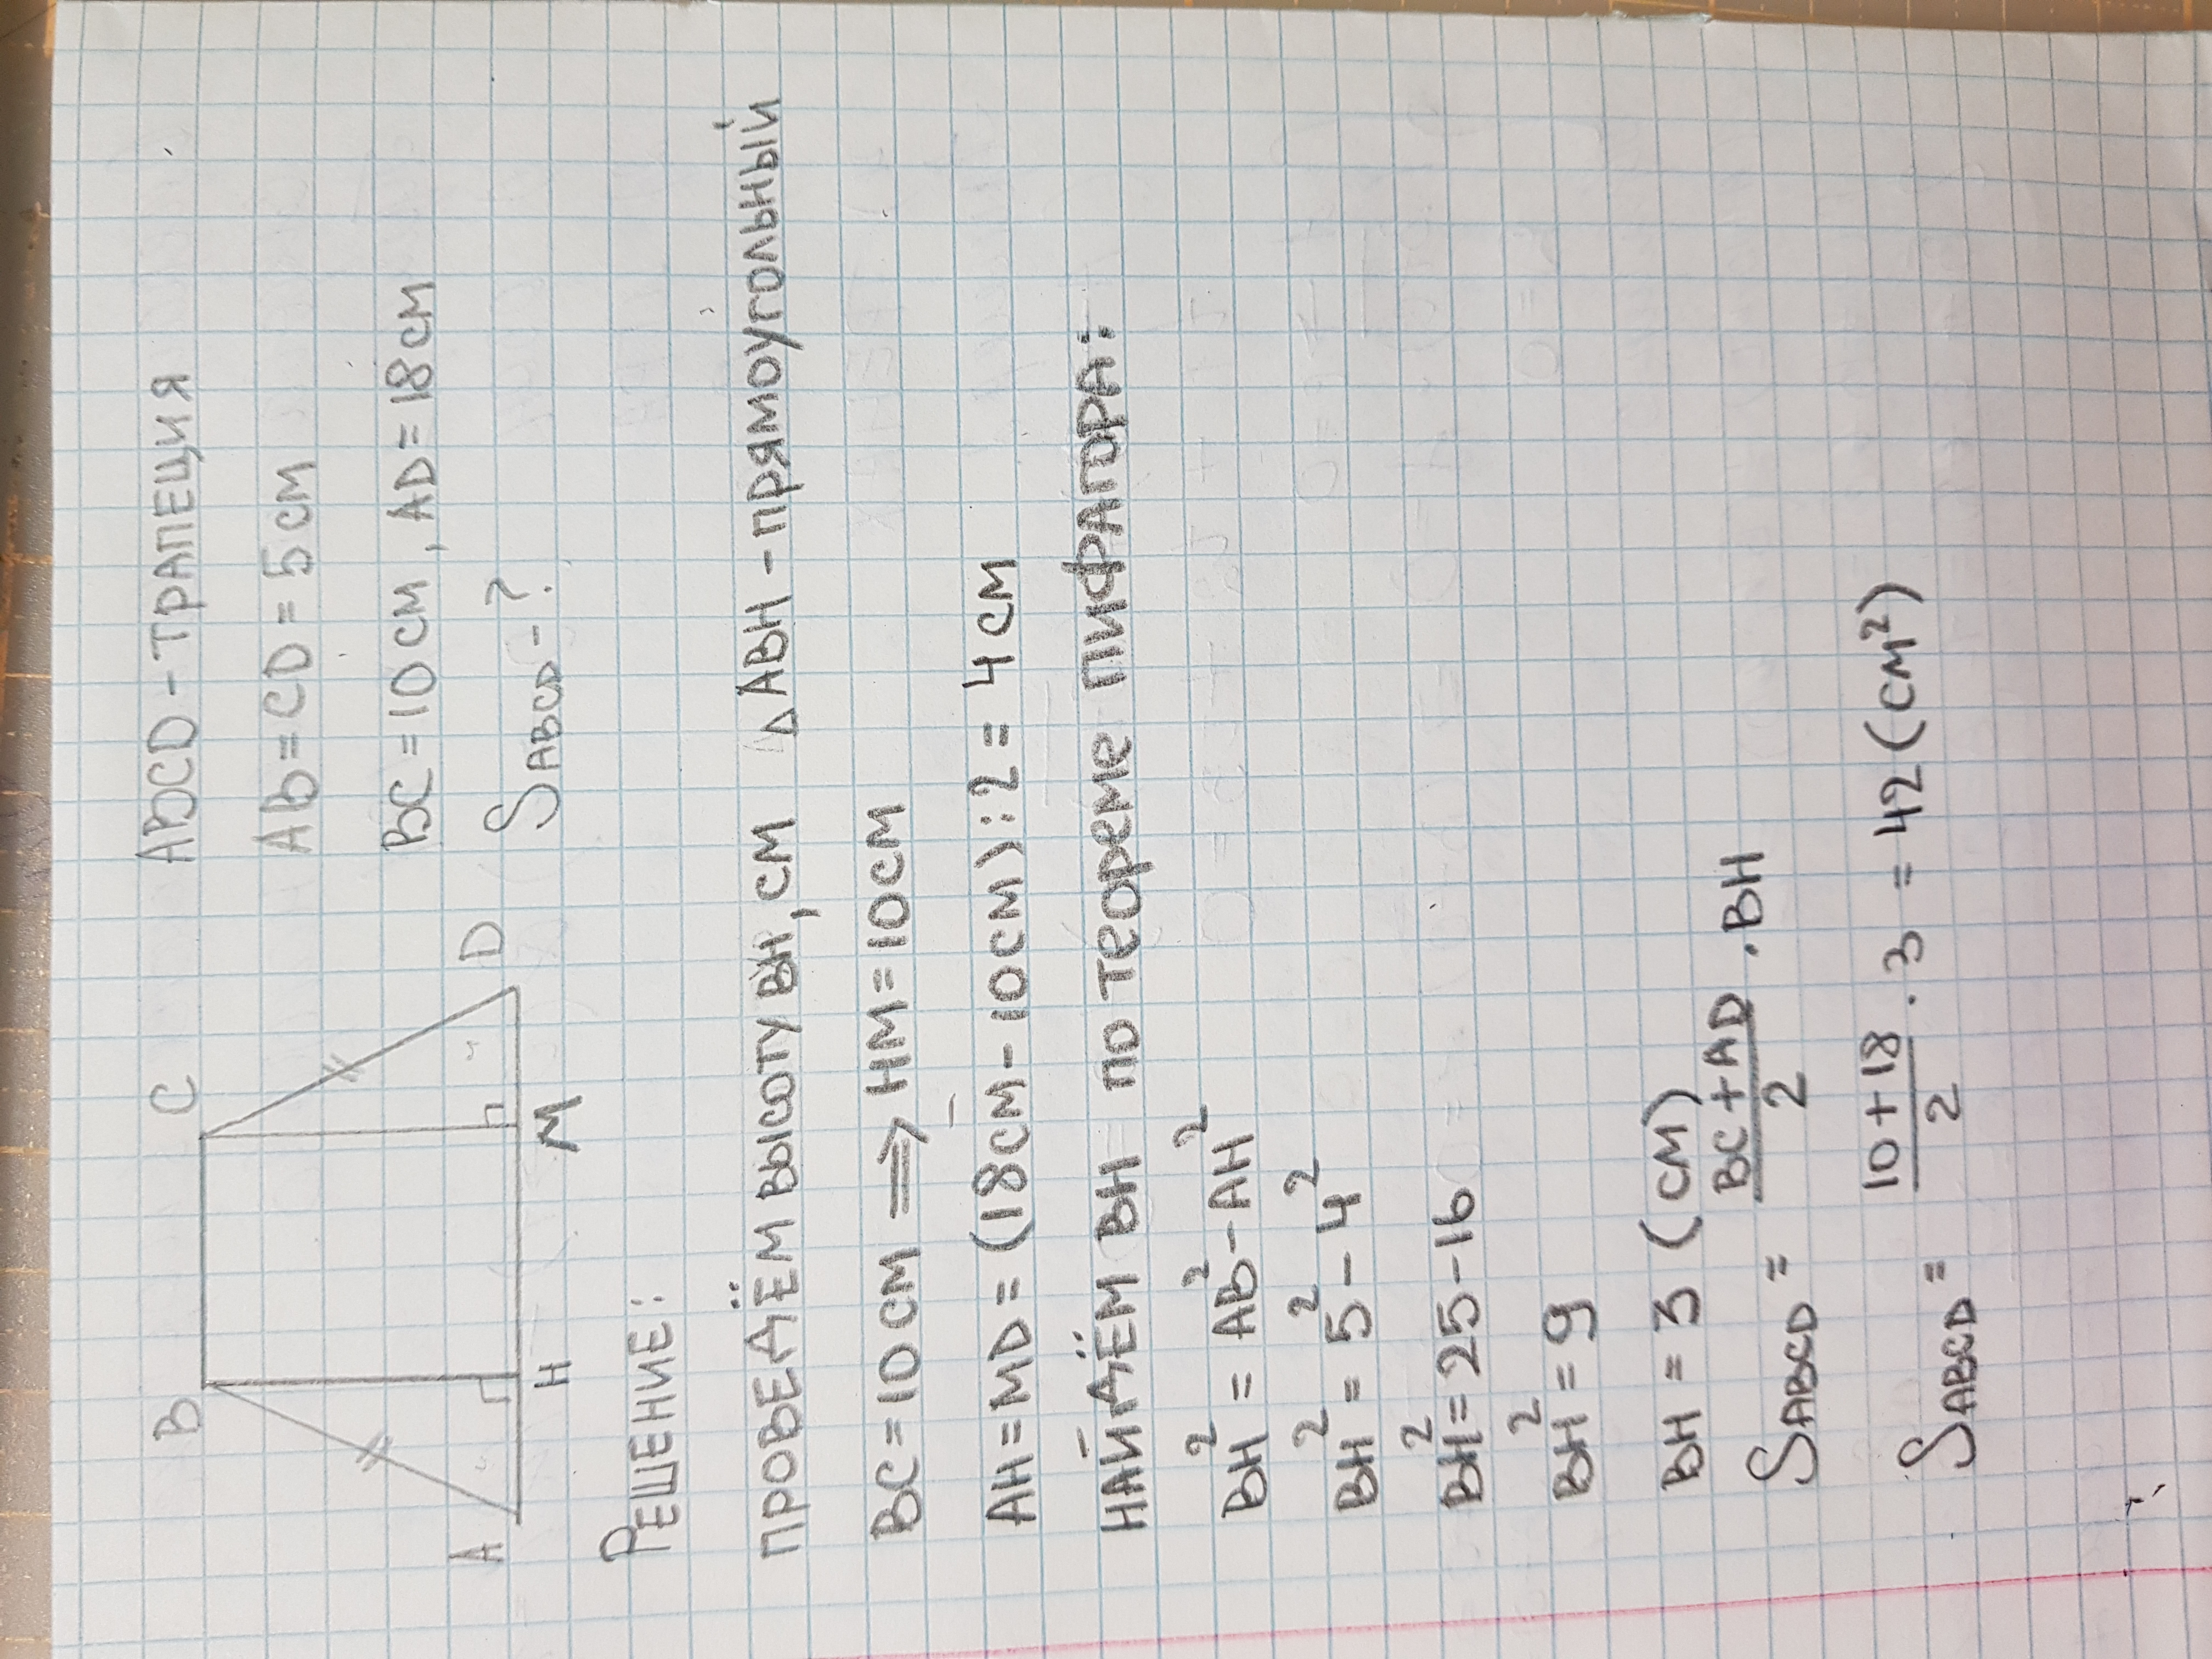 B C
A H M D
ABCD - ТРАПЕЦИЯ
AB = CD = 5 см
BC = 10 см, AD = 18 см
SABCD - ?
РЕШЕНИЕ:
ПРОВЕДЁМ ВЫСОТУ BH, CM △ABH - ПРЯМОУГОЛЬНЫЙ
BC = 10 см ⟹ HM = 10 см
AH = MD = (18 см - 10 см) : 2 = 4 см
НАЙДЁМ BH ПО ТЕОРЕМЕ ПИФАГОРА:
BH² = AB² - AH²
BH² = 5² - 4²
BH² = 25 - 16
BH² = 9
BH = 3 (см)
SABCD = (BC + AD)/2 · BH
SABCD = (10 + 18)/2 · 3 = 42 (см²)